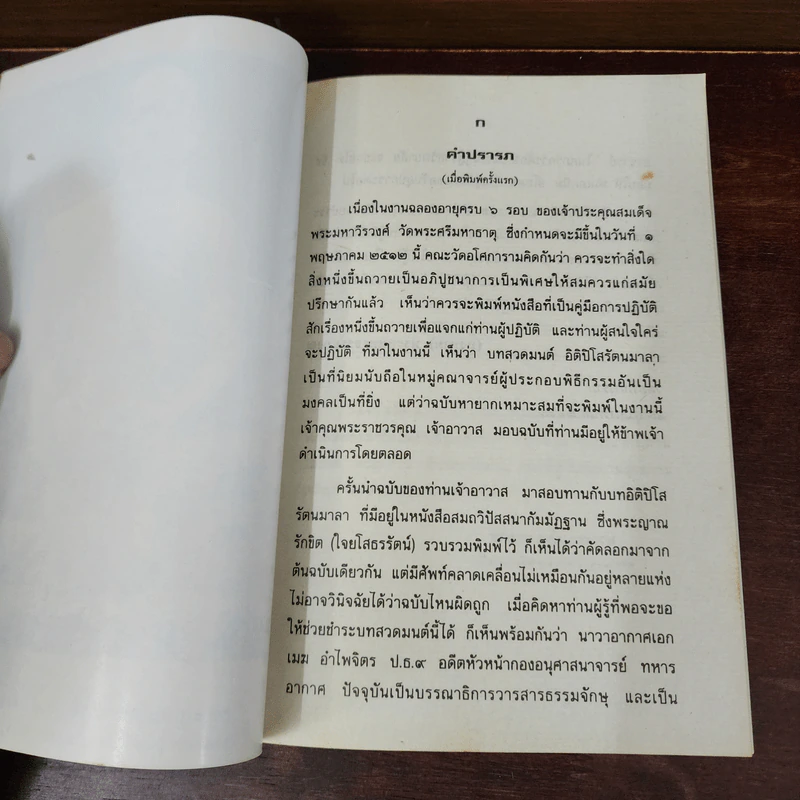 ก
คำปรารภ
(เมื่อพิมพ์ครั้งแรก)
เนื่องในงานฉลองอายุครบ ๖ รอบ ของเจ้าประคุณสมเด็จ
พระมหาวีรวงศ์ วัดพระศรีมหาธาตุ ซึ่งกำหนดจะมีขึ้นในวันที่ ๑
พฤษภาคม ๒๕๑๒ นี้ คณะวัดอโศการามคิดกันว่า ควรจะทำสิ่งใด
สิ่งหนึ่งขึ้นถวายเป็นอภิปูชนาการเป็นพิเศษให้สมควรแก่สมัย
ปรึกษากันแล้ว เห็นว่าควรจะพิมพ์หนังสือที่เป็นคู่มือการปฏิบัติ
สักเรื่องหนึ่งขึ้นถวายเพื่อแจกแก่ท่านผู้ปฏิบัติ และท่านผู้สนใจใคร่
จะปฏิบัติ ที่มาในงานนี้ เห็นว่า บทสวดมนต์ อิติปิโสรัตนมาลา
เป็นที่นิยมนับถือในหมู่คณาจารย์ผู้ประกอบพิธีกรรมอันเป็น
มงคลเป็นที่ยิ่ง แต่ว่าฉบับหายากเหมาะสมที่จะพิมพ์ในงานนี้
เจ้าคุณพระราชวรคุณ เจ้าอาวาส มอบฉบับที่ท่านมีอยู่ให้ข้าพเจ้า
ดำเนินการโดยตลอด
ครั้นนำฉบับของท่านเจ้าอาวาส มาสอบทานกับบทอิติปิโส
รัตนมาลา ที่มีอยู่ในหนังสือสมถวิปัสสนากัมมัฏฐาน ซึ่งพระญาณ
รักขิต (ใจยโสธรรัตน์) รวบรวมพิมพ์ไว้ ก็เห็นได้ว่าคัดลอกมาจาก
ต้นฉบับเดียวกัน แต่มีศัพท์คลาดเคลื่อนไม่เหมือนกันอยู่หลายแห่ง
ไม่อาจวินิจฉัยได้ว่าฉบับไหนผิดถูก เมื่อคิดหาท่านผู้รู้ที่พอจะขอ
ให้ช่วยชำระบทสวดมนต์นี้ได้ ก็เห็นพร้อมกันว่า นาวาอากาศเอก
เมฆ อำไพจิตร ป.ธ.๙ อดีตหัวหน้ากองอนุศาสนาจารย์ ทหาร
อากาศ ปัจจุบันเป็นบรรณาธิการวารสารธรรมจักษุ และเป็น